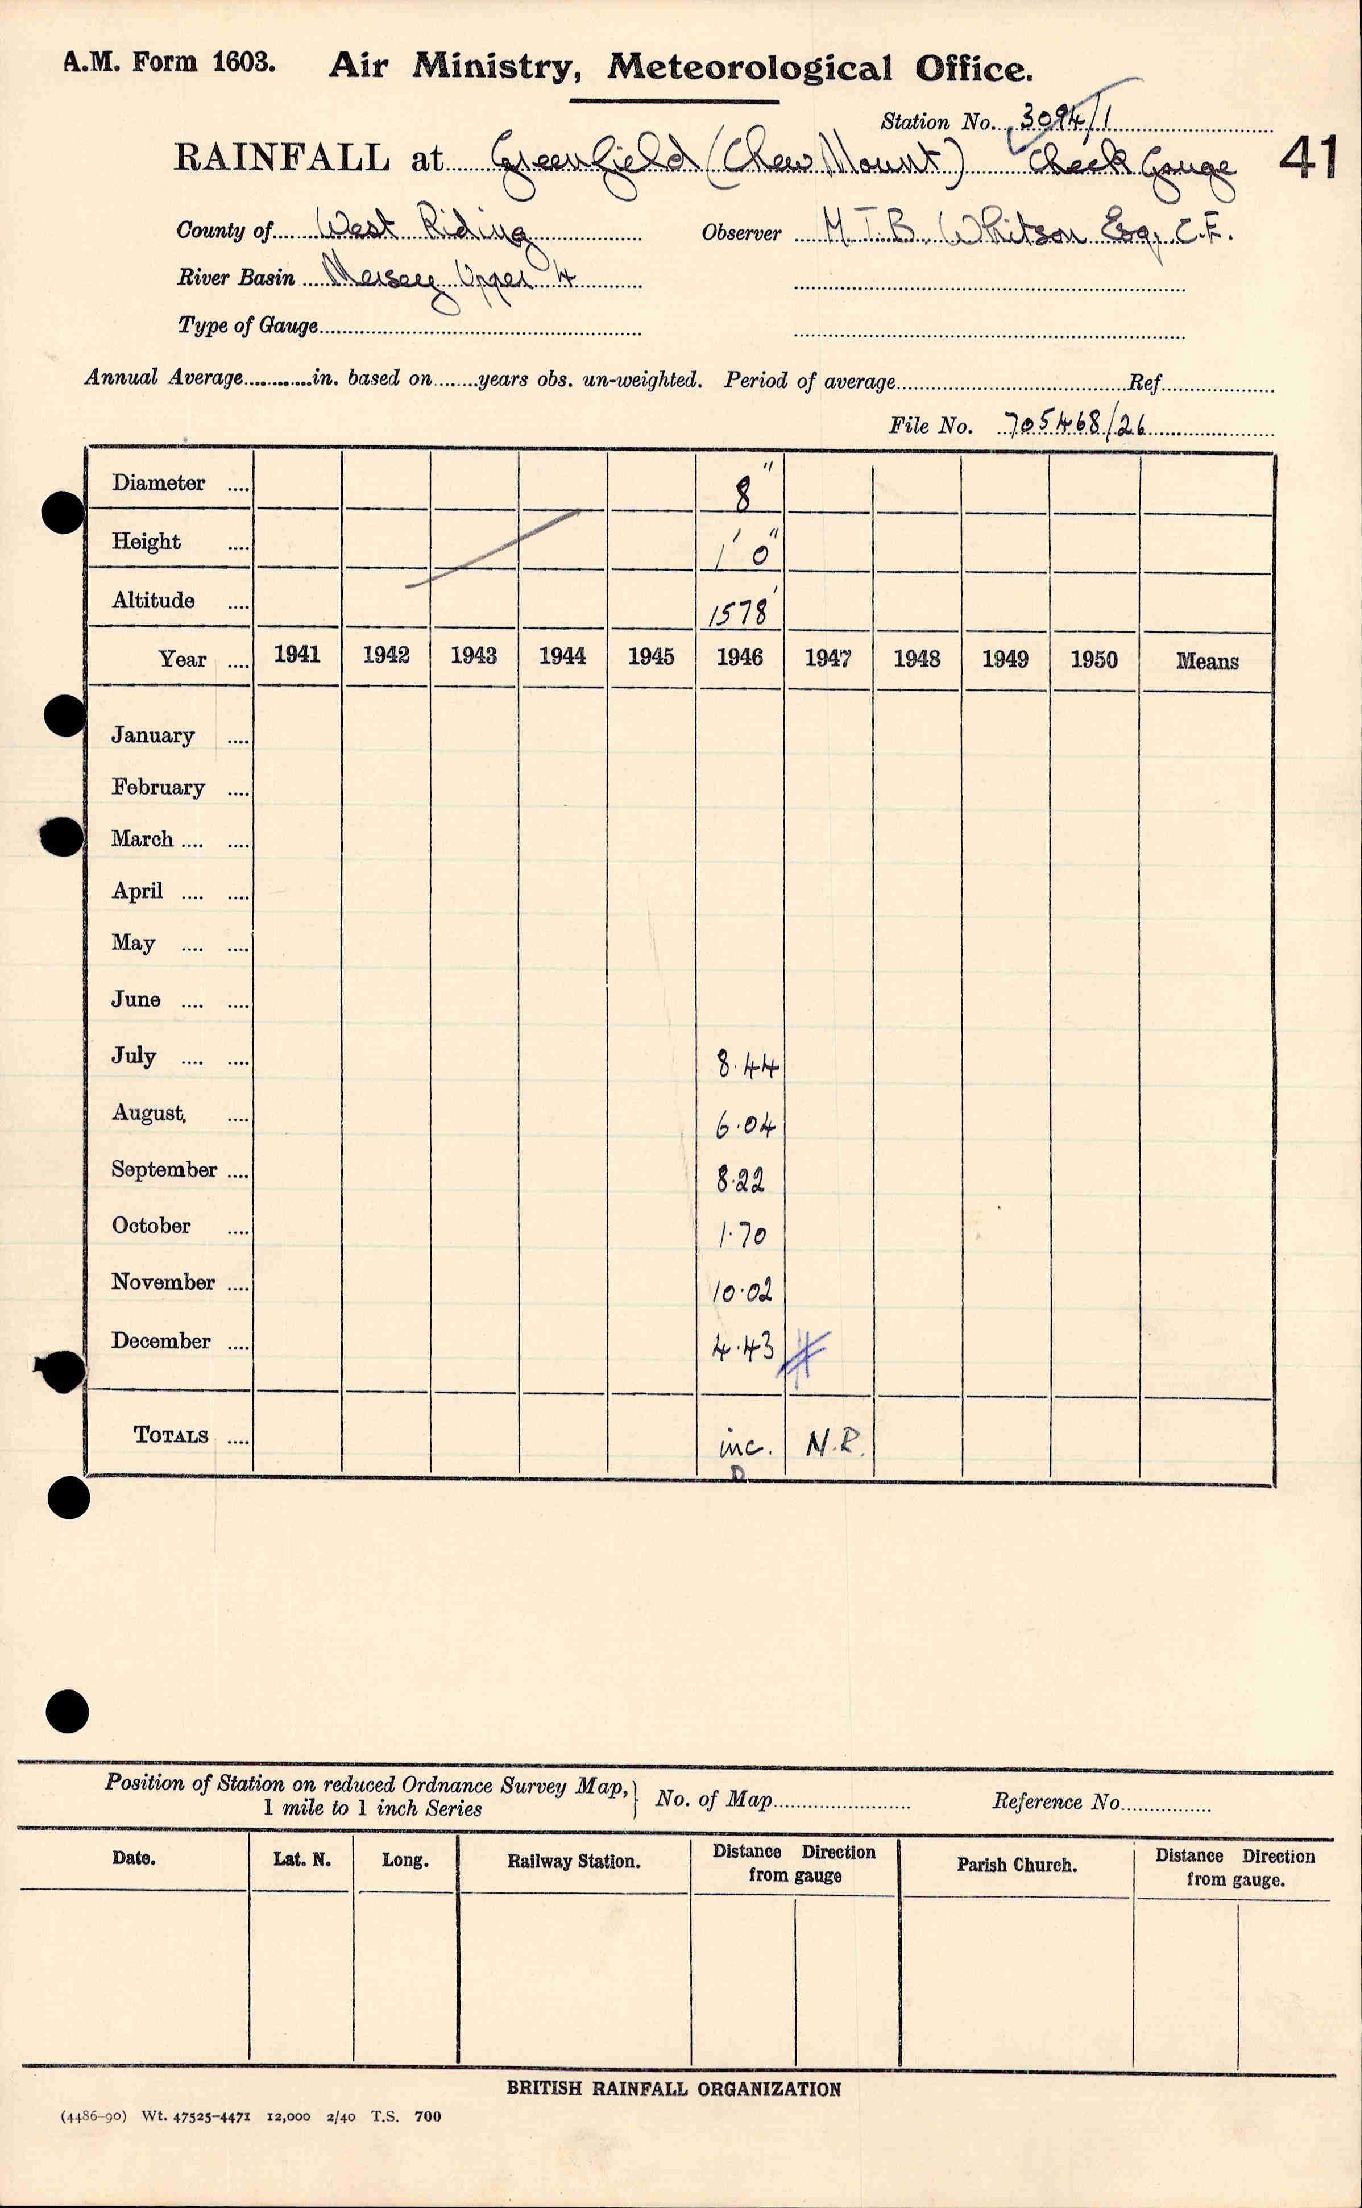 A.M. Form 1603. Air Ministry, Meteorological Office.
Station No. 3094/1
RAINFALL at Greenfield (Chew Mount) Check Gauge 41
County of West Riding Observer M.T.B. Whitson Esq. C.E.
River Basin Mersey Upper 4
Type of Gauge
Annual Average............in. based on........years obs. un-weighted. Period of average Ref.
File No. 705468/26
Diameter .... 8"
Height .... 1' 0"
Altitude .... 1578'
Year .... 1941 1942 1943 1944 1945 1946 1947 1948 1949 1950 Means
January ....
February ....
March .... ....
April .... ....
May .... ....
June .... ....
July .... .... 8.44
August, .... 6.04
September .... 8.22
October .... 1.70
November .... 10.02
December .... 4.43 #
TOTALS .... inc. N.R.
D
Position of Station on reduced Ordnance Survey Map, } No. of Map Reference No.
1 mile to 1 inch Series
Date. Lat. N. Long. Railway Station. Distance Direction from gauge Parish Church. Distance Direction from gauge.
BRITISH RAINFALL ORGANIZATION
(4486-90) Wt. 47525-4471 12,000 2/40 T.S. 700